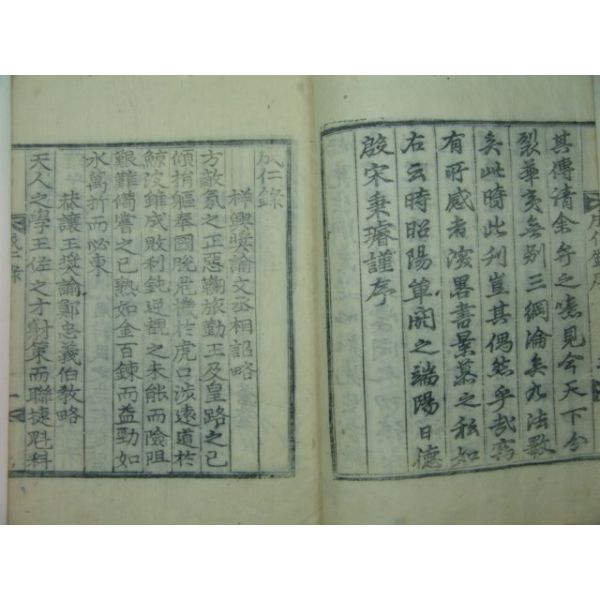 其傳請余弁之噫見今天下分
裂華夷無別三綱淪矣九法斁
矣此時此刊豈其偶然乎哉竊
有所感者畧書景慕之私如
右云時昭陽單閼之端陽日德
殷宋秉璿謹序
成仁錄序
成仁錄
祥興奬諭文丞相詔略
方敵氛之正惡鞠旅勤王及皇路之已
傾捐軀舉國脫危機於虎口涉遠道於
鯨波雖成敗利鈍逆覩之未能而險阻
艱難備嘗之已熟如金百鍊而益勁如
水萬折而必東
恭讓王奬諭鄭忠義伯教略
天人之學王佐之才對策而聯捷魁科
成仁錄
一